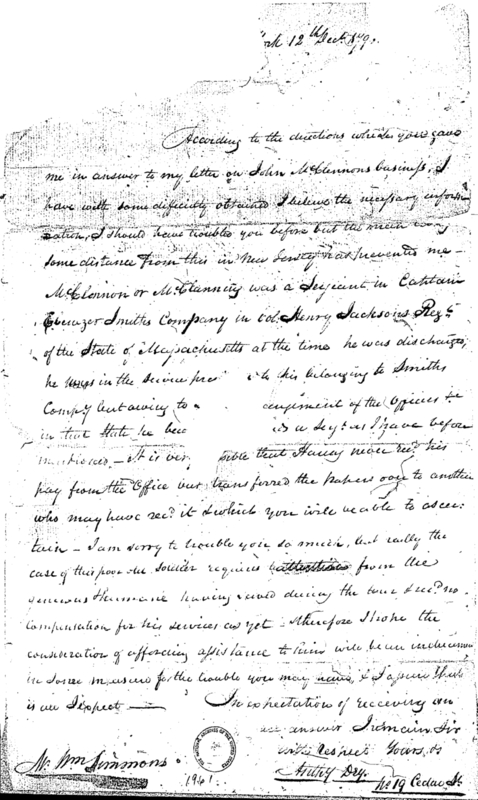 12th Decr. 179
According to the directions which you gave
me in answer to my letter on John McClennons business, I
have with some difficulty obtained I believe the necessary infor-
mation, I should have troubled you before but the man
some distance from this in New Jersey has prevented me
McClennon or McClanning was a Serjeant in Captain
Ebenezer Smiths Company in Col. Henry Jacksons Regt.
of the State of Massachusetts at the time he was discharged,
he was in the service to his belonging to Smiths
Compy but owing to angement of the Officers &c
in that State he as a Sejt. as I have before
mentioned — It is sible that Hanny never recd. his
pay from the Office but transferred the papers over to another
who may have recd. it & which you will be able to ascer-
tain — I am sorry to trouble you so much, but really the
case of this poor old Soldier requires attention from the
generous & humane having served during the war & recd. no
Compensation for his services as yet — therefore I hope the
consideration of affording assistance to him will be an inducement
in some measure for the trouble you may have, &
is all I expect — In expectation of receiving an
answer I remain Sir
with respect Yours,
Anthy Dey.
No 19 Cedar St.
Mr. Wm Simmons
1941